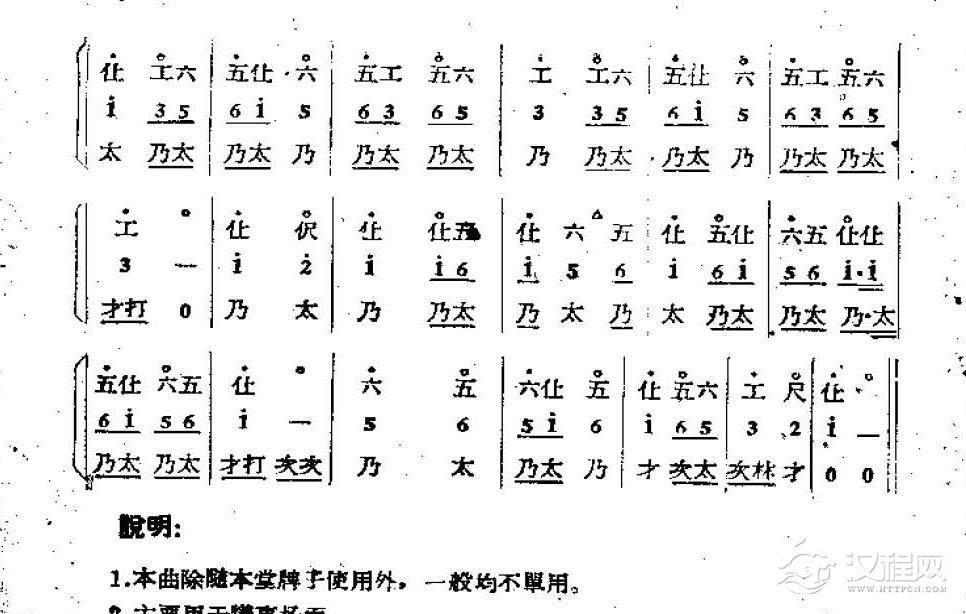 仩 工六 五仩 六 五工 五六 工 工六 五仩 六 五工 五六
i 3 5 6 i 5 6 3 6 5 3 3 5 6 i 5 6 3 6 5
太 乃太 乃太 乃 乃太 乃太 乃 乃太 乃太 乃 乃太 乃太
工 仩 伬 仩 仩五 仩 六 五 仩 五仩 六五 仩仩
3 — i 2 i i 6 i 5 6 i 6 i 5 6 i·i
才打 0 乃 太 乃 乃太 乃 太 乃 太 乃太 乃太 乃·太
五仩 六五 仩 六 五 六仩 五 仩 五六 工 尺 仩
6 i 5 6 i — 5 6 5 i 6 i 6 5 3 2 i —
乃太 乃太 才打 次次 乃 太 乃太 乃 才 次太 次冧 才 0 0
說明:
1.本曲除隨本堂牌子使用外，一般均不單用。
汉程网
WWW.HTTPCN.COM